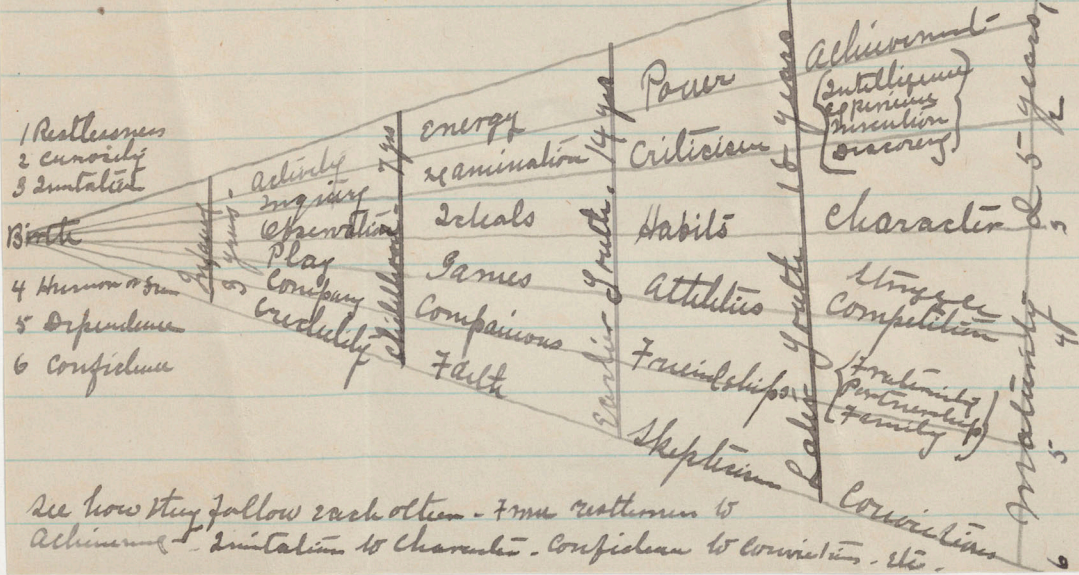 1 Restlessness
2 Curiosity
3 Imitation
Birth
4 Humor or Fun
5 Dependence
6 Confidence
Infant
3 yrs.
Activity
Inquiry
Observation
Play
Company
Credulity
Childhood 7 yrs
Energy
Examination
Ideals
Games
Companions
Faith
Earlier Youth. 14 yrs
Power
Criticism
Habits
Athletics
Friendships
Skepticism
Later Youth 18 years
Achievement
Intelligence
Experience
Discovery
Character
Struggle
Competition
Fraternity
Partnership
Family
Convictions
Maturity 25 years
1
2
3
4
5
6
See how they follow each other - From restlessness to
Achievement - Imitation to Character - Confidence to Convictions - etc.